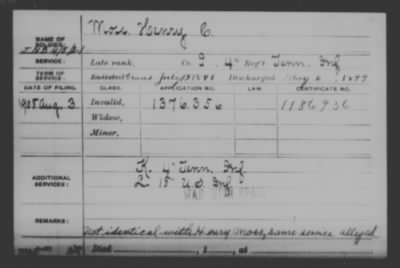 NAME OF SOLDIER: Moss, Henry C.
SERVICE: Late rank, Co. G. 4" Reg't Tenn. Inf
TERM OF SERVICE: Enlisted July 13 1898 Discharged May 6, 1899
DATE OF FILING. CLASS. APPLICATION NO. LAW. CERTIFICATE NO.
1908 Aug. 3. Invalid, 1376.356 1186936
Widow,
Minor,
ADDITIONAL SERVICES: K. 4" Tenn. Inf.
L. 15" U.S. Inf.
WAR WITH SPAIN
REMARKS: Not identical with Henry Moss, same service alleged
Died , 1 , at